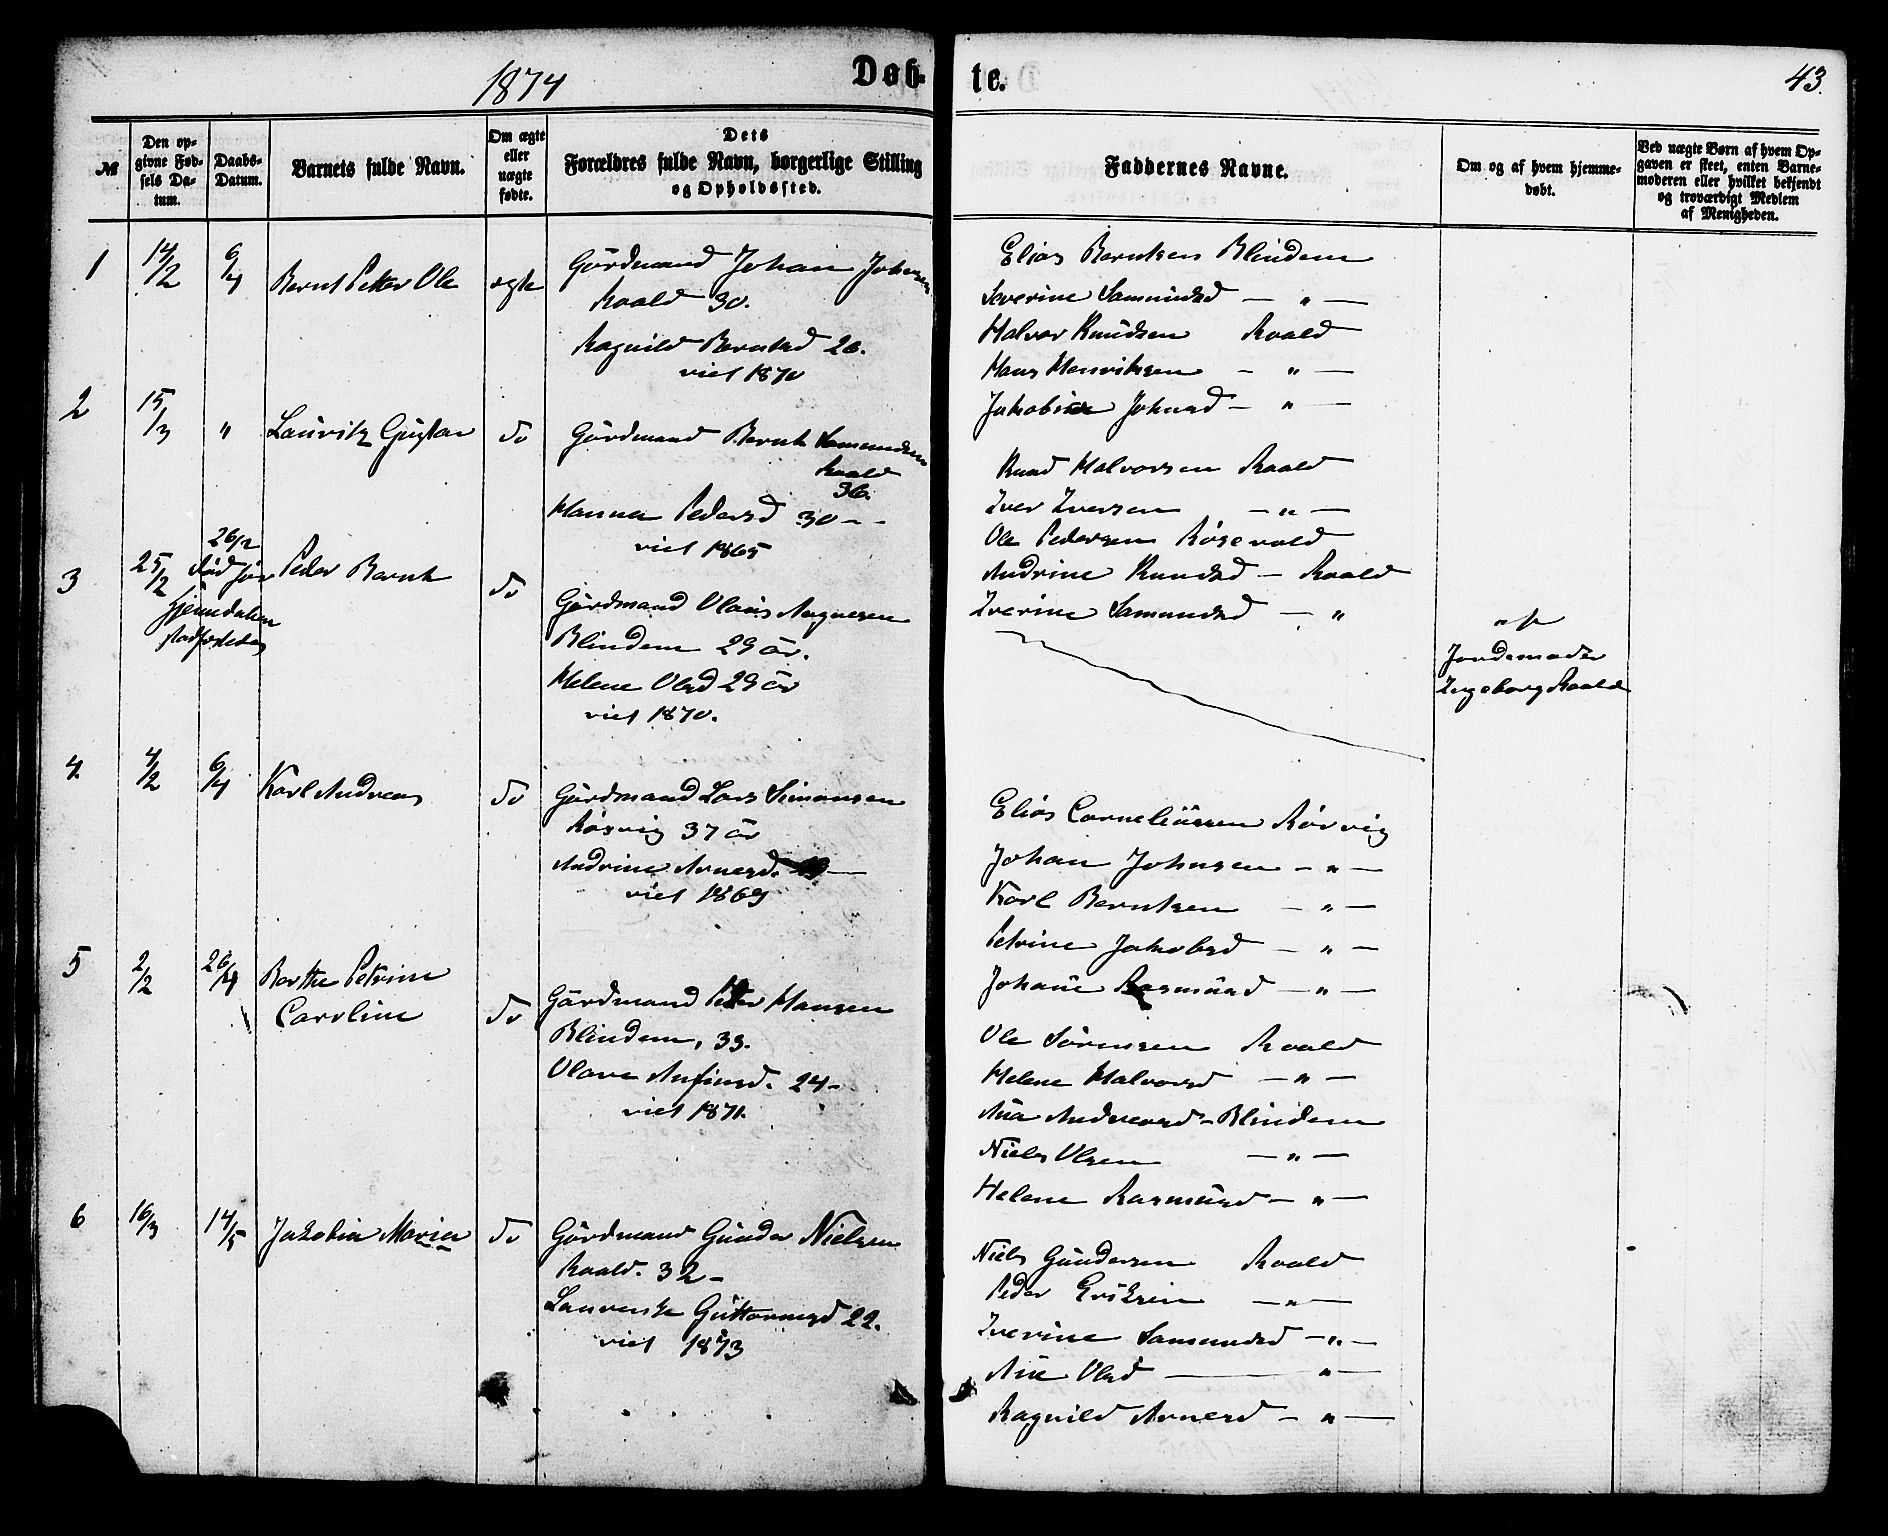 1874
Døb-
te.
43.
№
Den op-
givne Fød-
sels Da-
tum.
Daabs-
Datum.
Barnets fulde Navn.
Om ægte
eller
uægte
fødte.
Dets
Forældres fulde Navn, borgerlige Stilling
og Opholdssted.
Faddernes Navne.
Om og af hvem hjemme-
døbt.
Ved uægte Børn af hvem Op-
gaven er skeet, enten Barne-
moderen eller hvilket bekjendt
og troværdigt Medlem
af Menigheden.
1
14/2
6/4
Bernt Petter Ole
ægte
Gårdmand Johan Johnsen
Roald 30.
Ragnild Berntsd 26.
viet 1870
Elias Berntsen Blindem
Severine Samundsd — " —
Halvor Knudsen Roald
Hans Henriksen — " —
Jakobine Johnsd — " —
2
15/3
"
Lauritz Gustav
do
Gårdmand Bernt Samundsen
Roald
36.
Hanna Pedersd 30 - -
viet 1865
Knud Halvorsen Roald
Iver Iversen — " —
Ole Pedersen Røsevold
Andrine Knudsd — Roald
Iverine Samundsd — "
3
25/2
26/2
død før
Hjemdåben
stadfæstedes
Peder Bernt
do
Gårdmand Olaus Magnesen
Blindem 29 år.
Helene Olsd 29 år
viet 1870.
af
Jordemoder
Ingeborg Roald
4
4/2
6/4
Karl Andreas
do
Gårdmand Lars Simonsen
Røsvig 37 år
Andrine Arnesd. —
viet 1869
Elias Corneliussen Rørvig
Johan Johnsen — " —
Karl Berntsen — " —
Petrine Jakobsd — " —
Johane Rasmusd — " —
5
2/2
26/4
Berthe Petrine
Caroline
do
Gårdmand Peder Hansen
Blindem, 33.
Olave Anfinsd. 24 -
viet 1871.
Ole Sørensen Roald
Helene Halvorsd — " —
Ana Andreasd - Blindem
Niels Olsen — " —
Helene Rasmusd — " —
6
16/3
14/5
Jakobia Maria
do
Gårdmand Gunder Nielsen
Roald. 32 -
Laurentse Guttormsd 22.
viet 1873
Niels Gundersen Roald
Peder Eriksen — " —
Iverine Samundsd — " —
Ane Olsd — " —
Ragnild Arnesd — " —